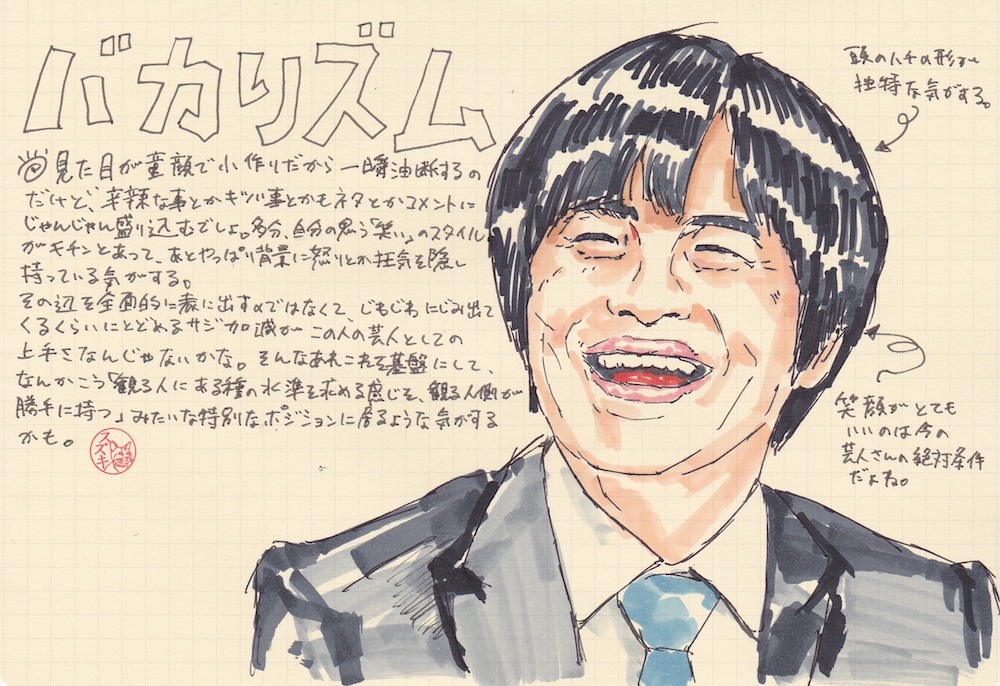 バカリズム
見た目が童顔で小作りだから一瞬油断するの
だけど、辛辣な事とかキツい事とかもネタとかコメントに
じゃんじゃん盛り込むでしょ。多分、自分の思う「笑い」のスタイル
がキチンとあって、あとやっぱり背景に怒りとか狂気を隠し
持っている気がする。
その辺を全面的に表に出すのではなくて、じわじわにじみ出て
くるくらいにとどめるサジ加減がこの人の芸人としての
上手さなんじゃないかな。そんなあれこれを基盤にして、
なんかこう「観る人にある種の水準を求める感じを、観る人側が
勝手に持つ」みたいな特別なポジションに居るような気がする
かも。
スズキ
頭のハチの形が
独特な気がする。
笑顔がとても
いいのは今の
芸人さんの絶対条件
だよね。